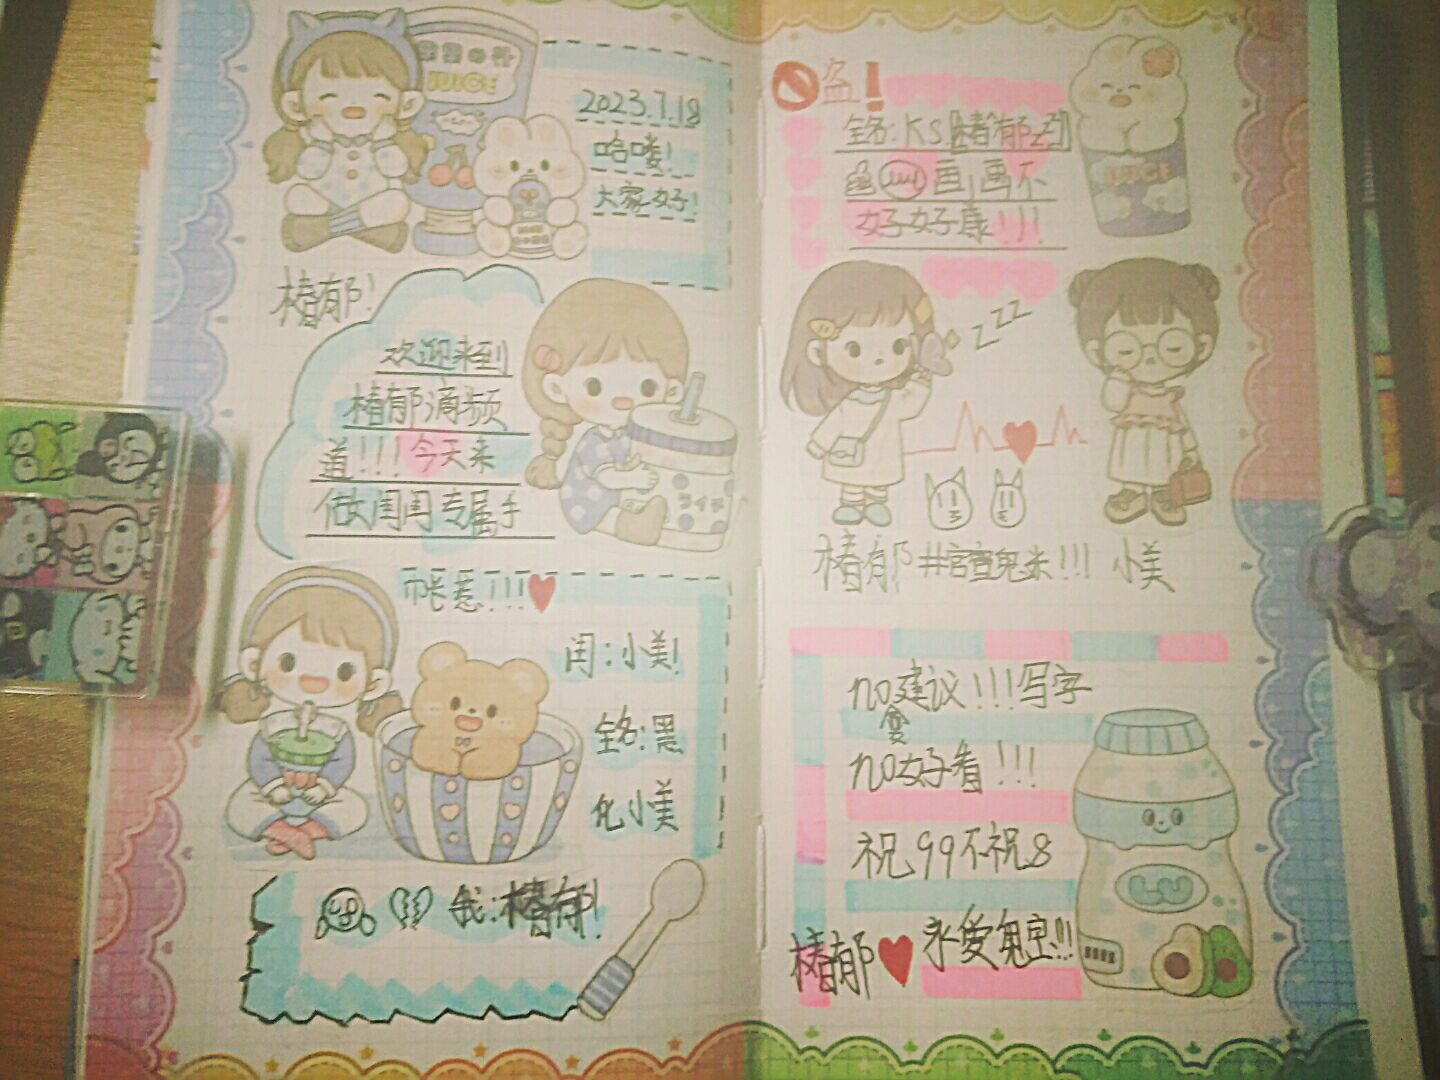 JUICE
2023.7.18
哈喽!
大家好!
椿郁!
欢迎来到
椿郁滴频
道!!!今天来
做闺闺专属手
帐惹!!!
闺:小美!
全名:黑
化小美
我:椿郁!
盗!
全名:KS
画画不
好好康!!!
JUICE
zzz
椿郁
小美
no建议!!!写字
no好看!!!
祝99不祝8
椿郁
永爱